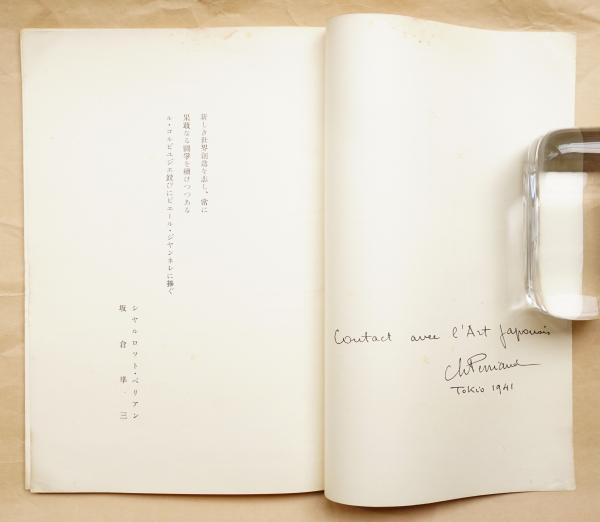 新しき世界創造を志し、常に
果敢なる闘爭を續けつつある
ル・コルビユジエ並びにピエール・ジヤンネレに捧ぐ
シヤルロツト・ペリアン
坂倉準三
Contact avec l'Art Japonais
Ch Perriand
Tokio 1941